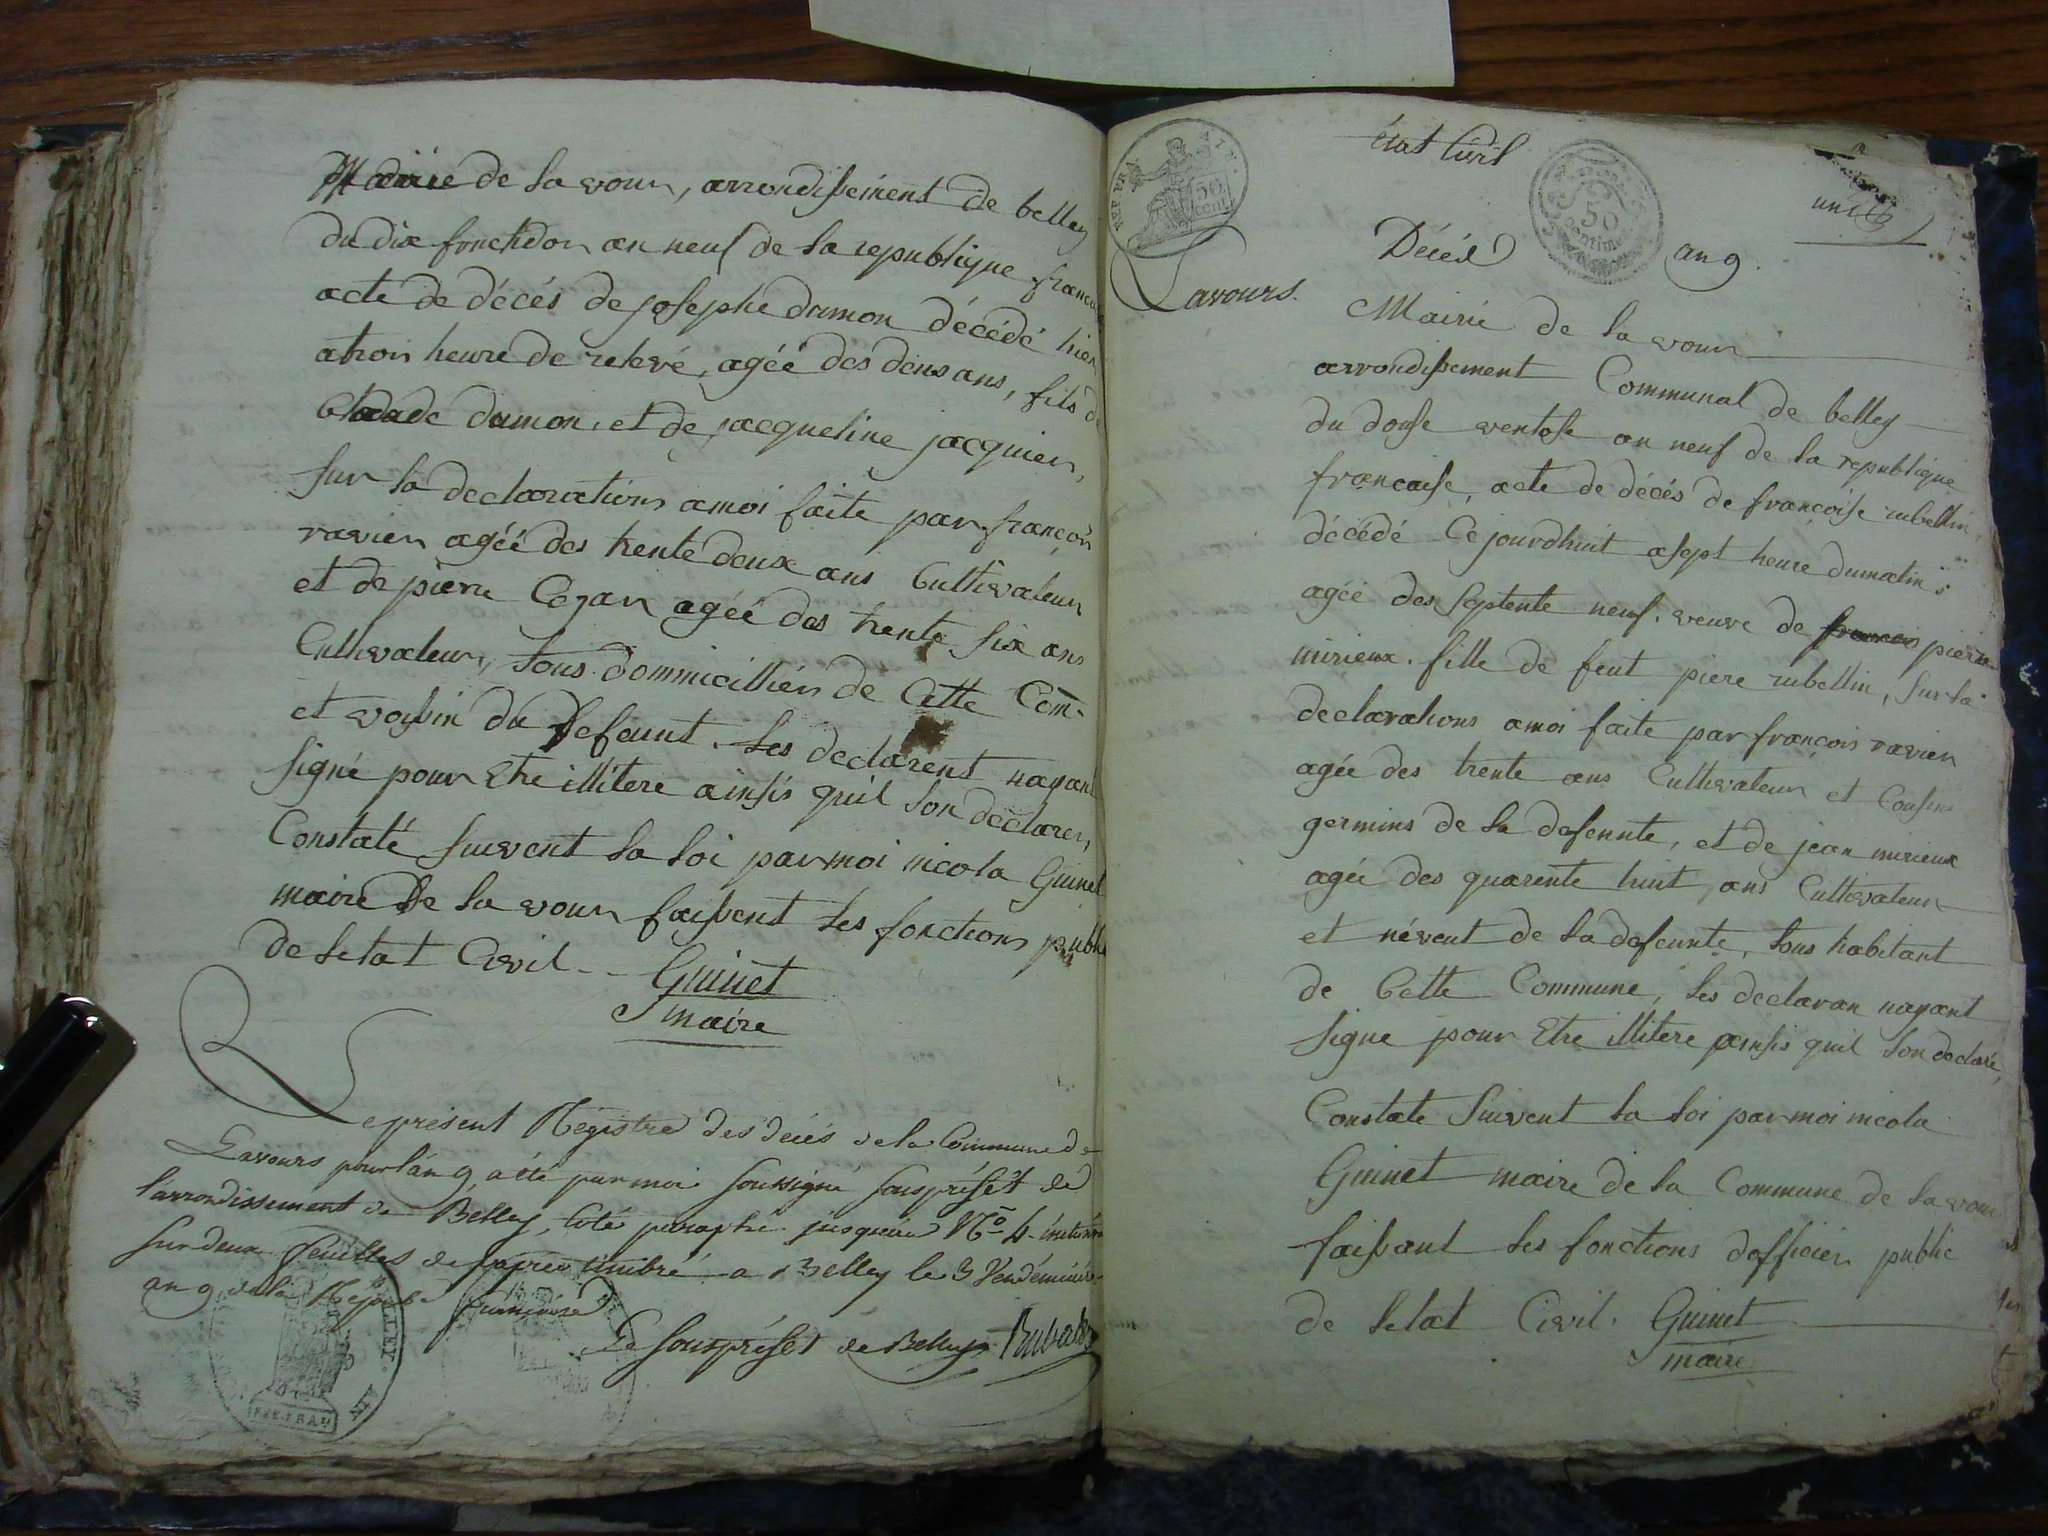 Mairie de la vour, arrondissement de belley
du dix fructidor an neuf de la republique
acte de décés de josephe dumon décédé hier
atrois heure de relevé, agéé des deux ans, fils de
Claude dumon, et de jacqueline jacquier,
sur la declarations amoi faite par françois
ravier agéé des trente deux ans Cultivateur
et de pierre Cezar agéé des trente six ans
Cultivateur, tous dommicilliér de Cette Com.
et voisin du defeunt. les declarent nayant
signé pour Etre illitere ainsis quil lon declarer,
Constaté suivent la loi par moi nicola Guinet
maire De la vour faisvent les fonctions
de letat Civil -- Guinet
maire
Le présent Régistre des décés de la Commune de
Lavours pour l'an 9, a été par moi soussigné souspréfet de
l'arrondissement de Belley, coté paraphé jusqu'au No. 4
sur deux feuilles de papier timbré a Belley le 3 Vendémiaire
an 9 de la Répub. française
Le souspréfet de Belley
REP. FRA.
50
cent.
état Civil
50
centimes
un
Décés an 9.
Lavours.
Mairie de la vour
arrondissement Communal de belley
du douse ventose an neuf de la republique
francaise, acte de décés de françoise rubellin,
décédé Ce jourdhuit asept heure dumatin,
agéé des septente neuf. veuve de francois pierre
mirieux. fille de feut piere rubellin, sur la
declarations amoi faite par françois ravier
agée des trente ans Cultivateur et Cousin
germins de la defeunte, et de jean mirieux
agée des quarente huit ans Cultivateur
et néveut de la defeunte, tous habitant
de Cette Commune, les declaran nayant
signe pour Etre illitere ainsis quil lon declaré,
Constate suivent la loi par moi nicola
Guinet maire de la Commune de la vour
faisvant les fonctions dofficier public
de letat Civil. Guinet
maire